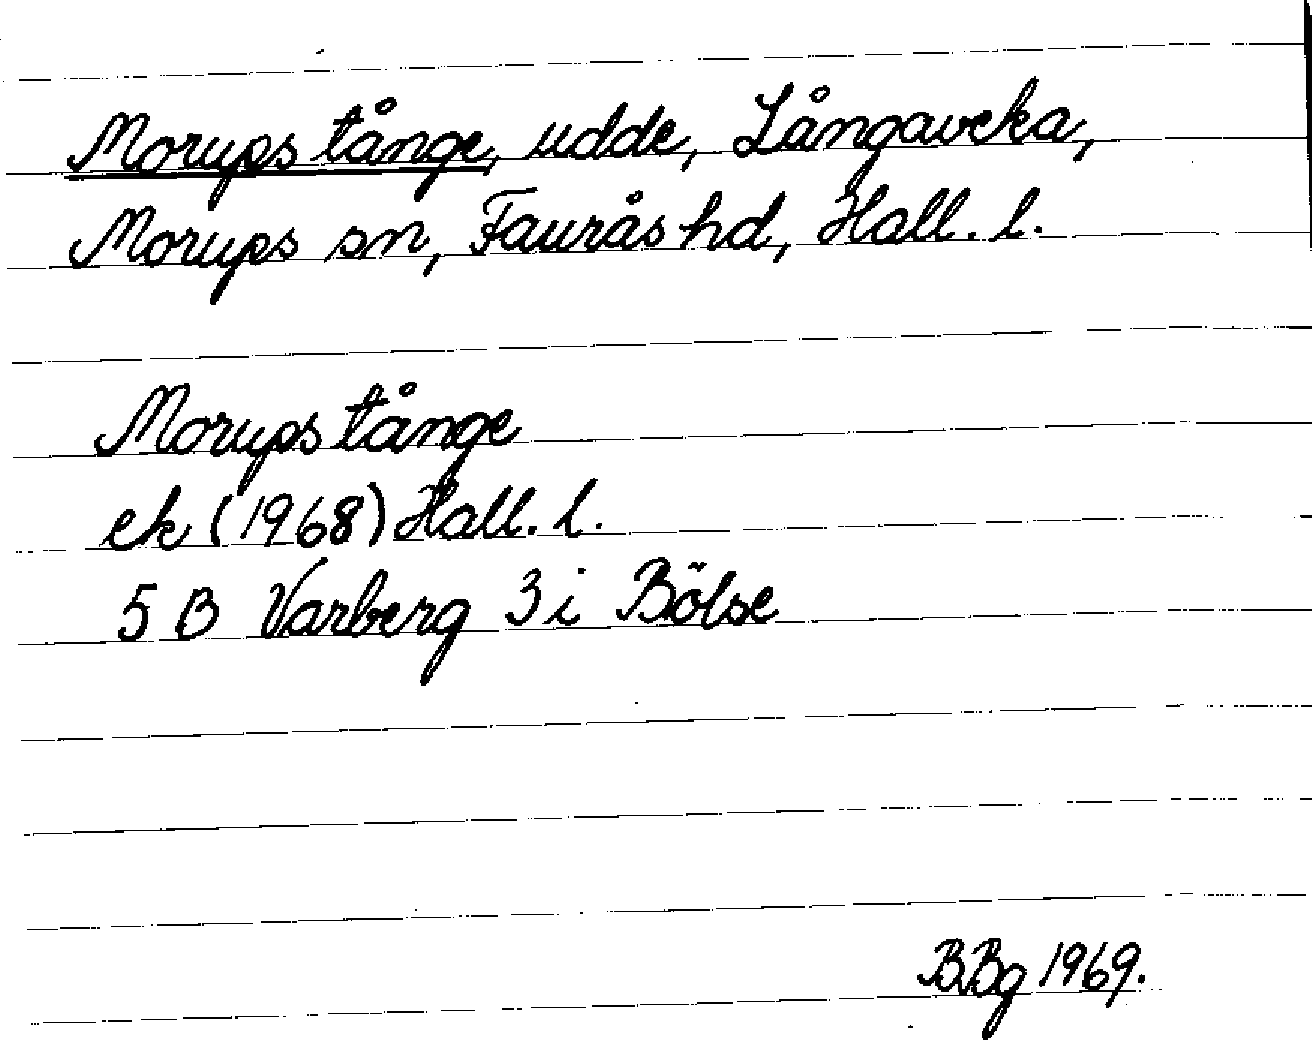 Morups tånge, udde, Långaveka,
Morups sn, Faurås hd, Hall. l.
Morups tånge
ek (1968) Hall. l.
5 B Varberg 3 i Bölse
BBg 1969.